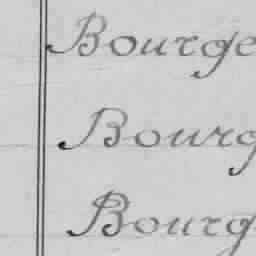 Bourge
Bourg
Bourg